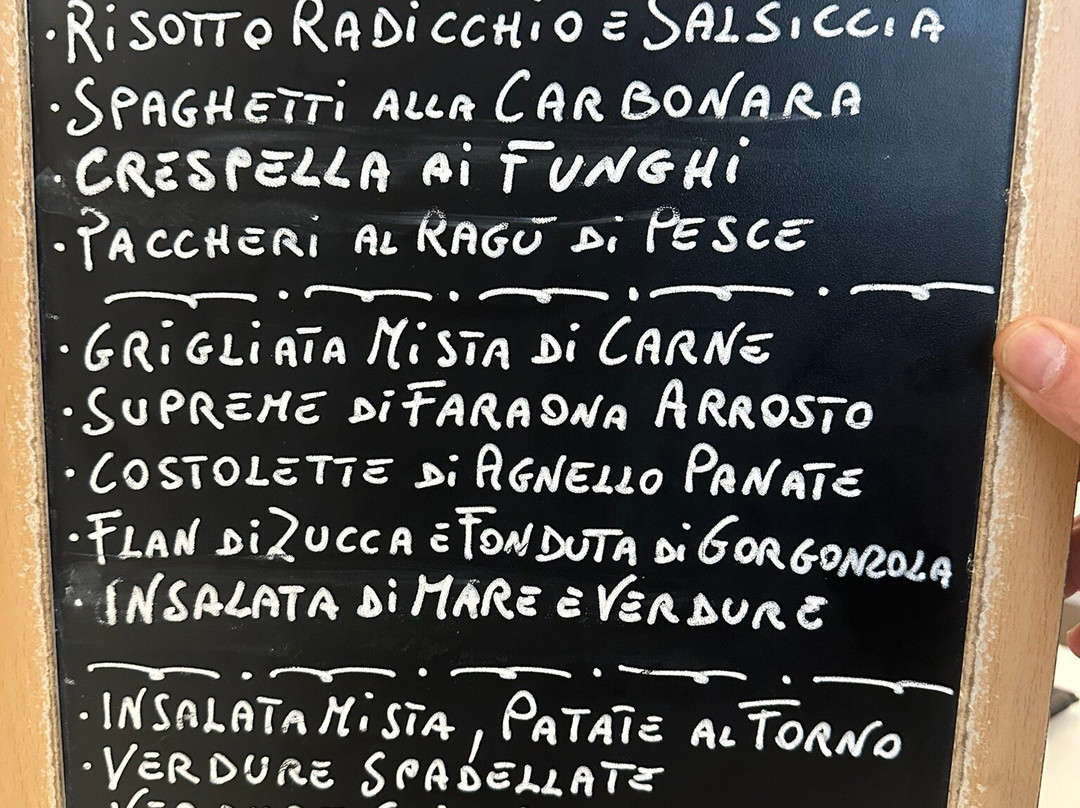 · RISOTTO RADICCHIO E SALSICCIA
· SPAGHETTI ALLA CARBONARA
· CRESPELLA AI FUNGHI
· PACCHERI AL RAGÙ DI PESCE
· GRIGLIATA MISTA DI CARNE
· SUPREME DI FARAONA ARROSTO
· COSTOLETTE DI AGNELLO PANATE
· FLAN DI ZUCCA E FONDUTA DI GORGONZOLA
· INSALATA DI MARE E VERDURE
· INSALATA MISTA, PATATE AL FORNO
· VERDURE SPADELLATE